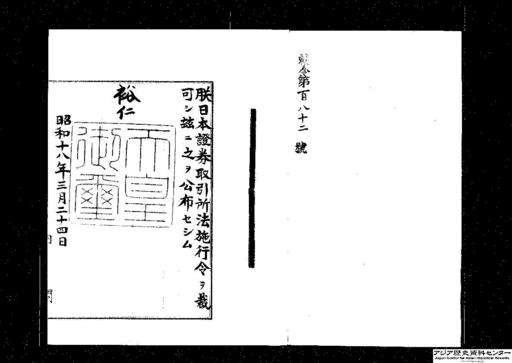 勅令第百八十二號
朕日本證券取引所法施行令ヲ裁
可シ茲ニ之ヲ公布セシム
裕仁
天皇
御璽
昭和十八年三月二十四日
アジア歴史資料センター
Japan Center for Asian Historical Records